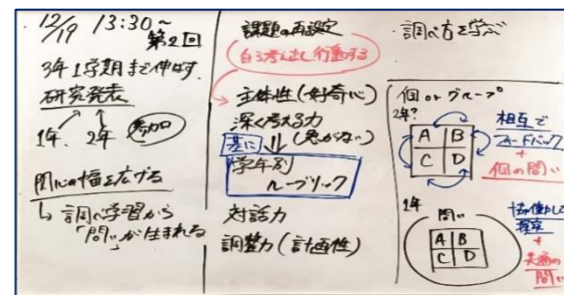 12/19 13:30~
第2回
3年1学期まで伸ばす。
研究発表
1年、2年 参加
関心の幅を広げる
↳ 調べ学習から
「問い」が生まれる
課題の再設定
自ら考え出し行動する
主体性(好奇心)
深く考える力
基に
学年別
ルーブリック
対話力
調整力(計画性)
・調べ方を学ぶ
個 or グループ
2年?
A B
C D
相互で
フィードバック
+
個の問い
1年
問い
A B
C D
協働して
探究
+
共通の
問い